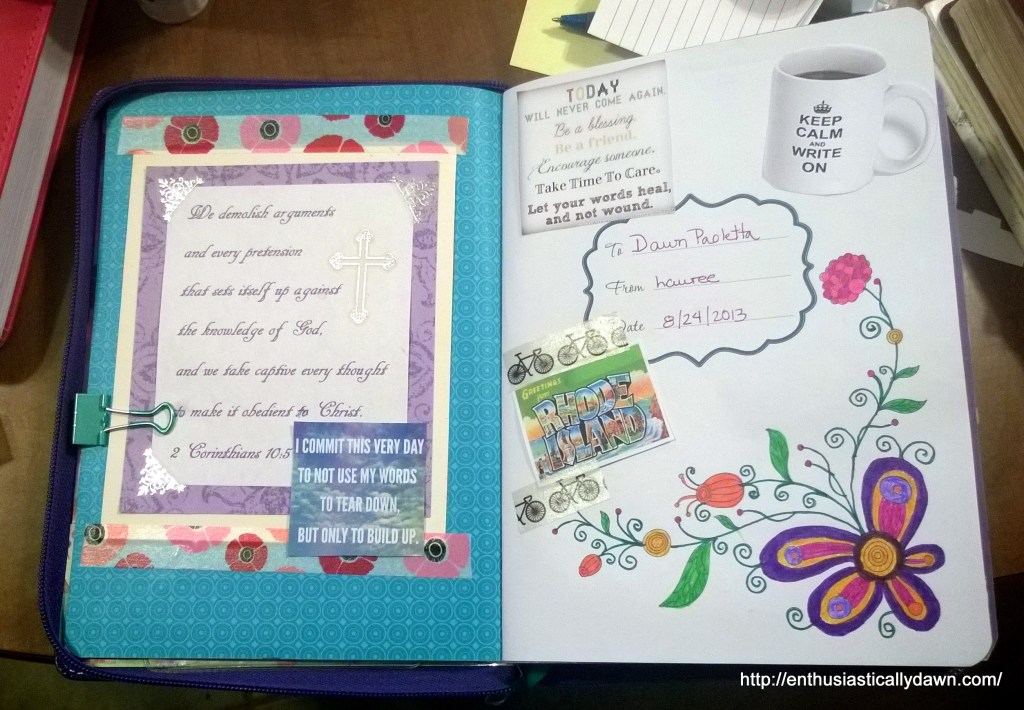 We demolish arguments
and every pretension
that sets itself up against
the knowledge of God,
and we take captive every thought
to make it obedient to Christ.
2 Corinthians 10:5
I COMMIT THIS VERY DAY
TO NOT USE MY WORDS
TO TEAR DOWN,
BUT ONLY TO BUILD UP.
TODAY
WILL NEVER COME AGAIN.
Be a blessing.
Be a friend.
Encourage someone.
Take Time To Care.
Let your words heal,
and not wound.
KEEP
CALM
AND
WRITE
ON
To Dawn Paoletta
From Lauree
Date 8/24/2013
GREETINGS
FROM
RHODE
ISLAND
http://enthusiasticallydawn.com/